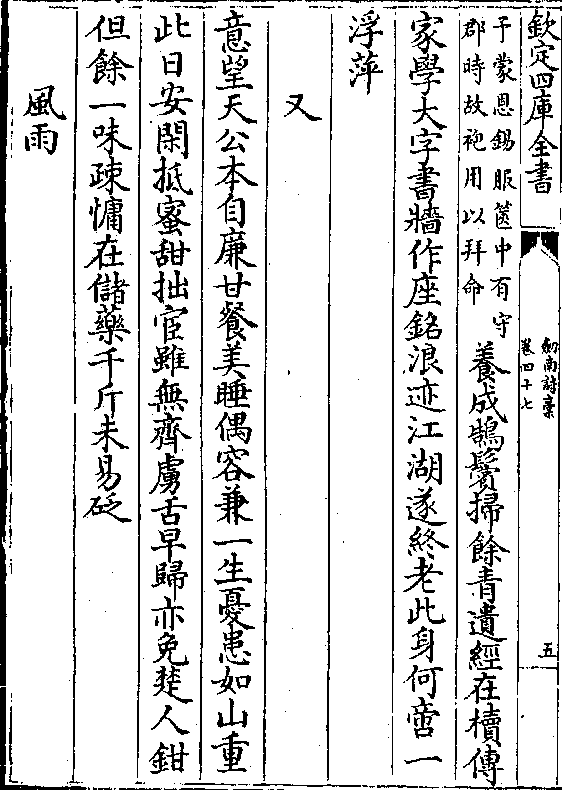 欽定四庫全書
劒南詩稾
卷四十七
五
予蒙恩錫服篋中有守
郡時故袍用以拜命
養成鶴鬢掃餘青遺經在櫝傳
家學大字書牆作座銘浪迹江湖遂終老此身何啻一
浮萍
又
意望天公本自廉甘餐美睡偶容兼一生憂患如山重
此日安閑抵蜜甜拙宦雖無齊虜舌早歸亦免楚人鉗
但餘一味疎慵在儲藥千斤未易砭
風雨